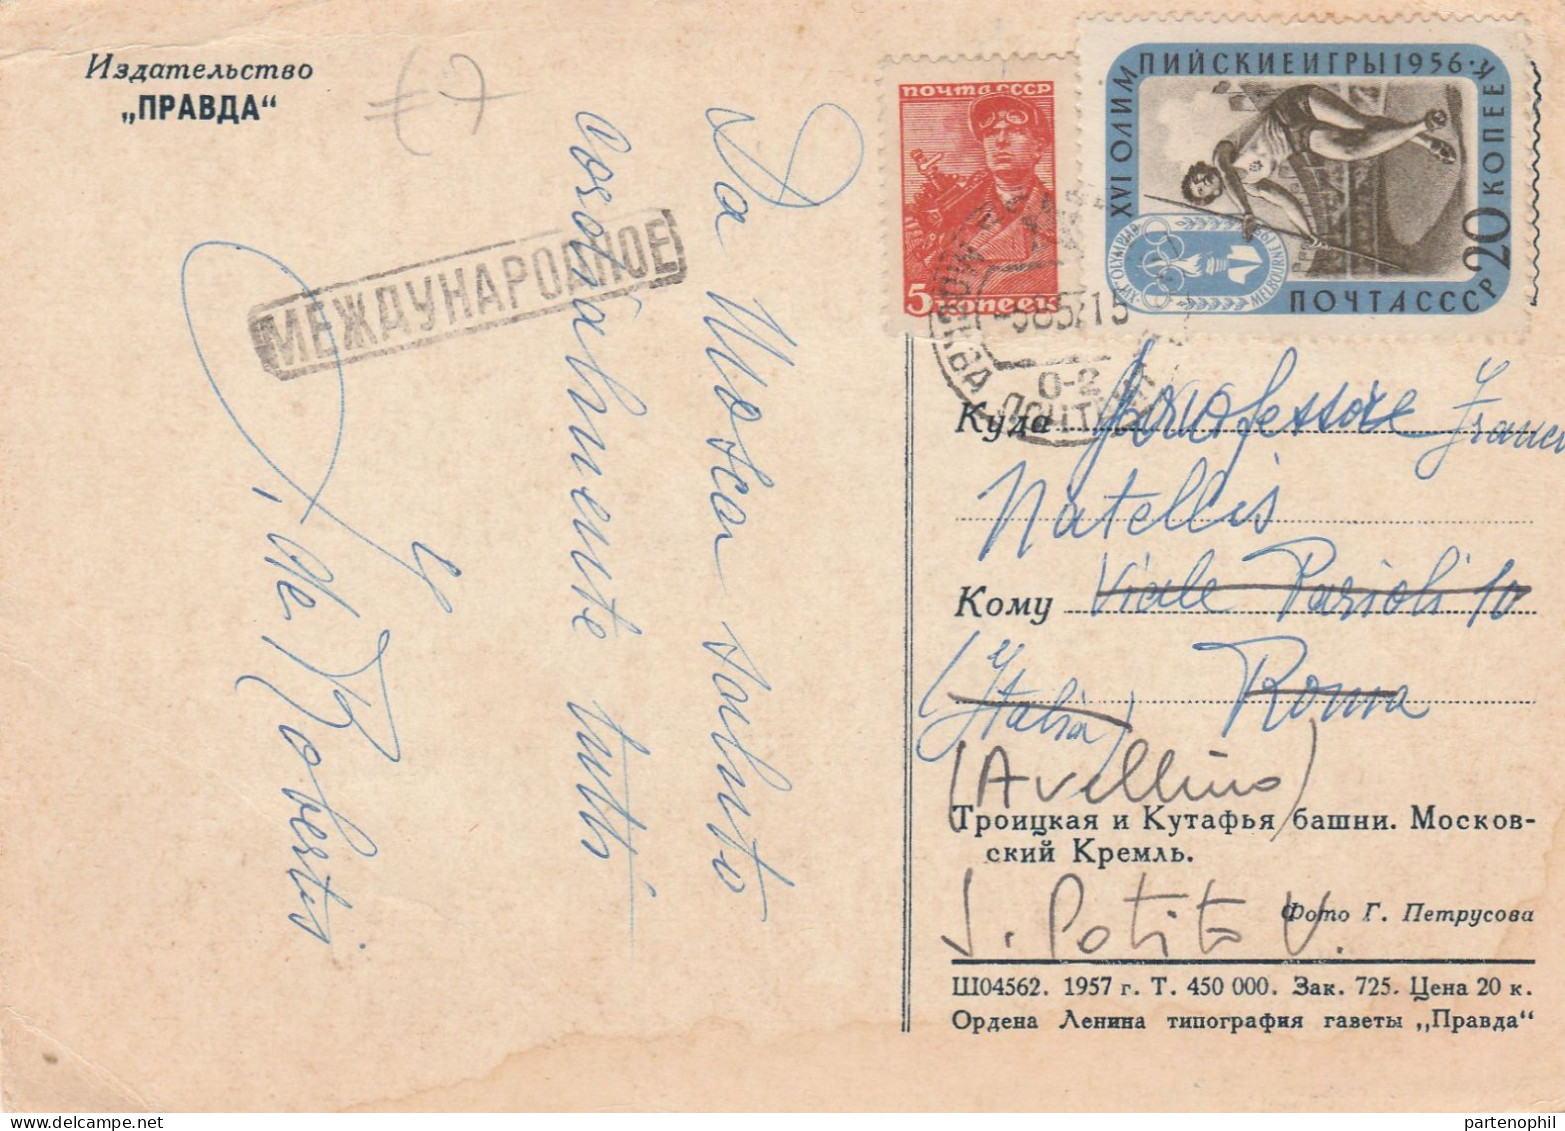 Издательство
„ПРАВДА“
МЕЖДУНАРОДНОЕ
Da Mosca saluto
cordialmente tutti
De Robertis
ПОЧТА СССР
5 копеек
XVI ОЛИМПИЙСКИЕ ИГРЫ 1956
20 КОПЕЕК
ПОЧТА СССР
МОСКВА ПОЧТАМТ
0-2
Куда Professore Franc
Natellis
Кому Viale Parioli 10
(Italia) Roma
(Avellino)
Троицкая и Кутафья башни. Москов-
ский Кремль.
S. Potito U.
Фото Г. Петрусова
Ш04562. 1957 г. Т. 450 000. Зак. 725. Цена 20 к.
Ордена Ленина типография газеты „Правда“
partenophil